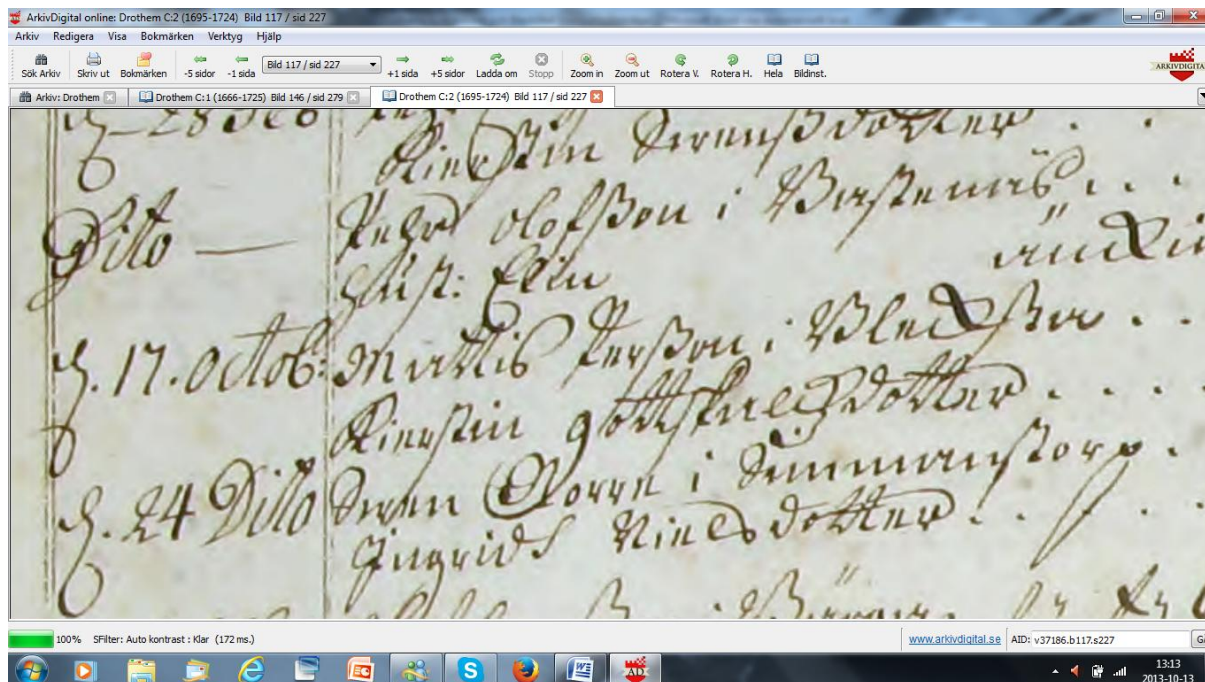 ArkivDigital online: Drothem C:2 (1695-1724) Bild 117 / sid 227
Arkiv Redigera Visa Bokmärken Verktyg Hjälp
Sök Arkiv Skriv ut Bokmärken -5 sidor -1 sida Bild 117 / sid 227 +1 sida +5 sidor Ladda om Stopp Zoom in Zoom ut Rotera V. Rotera H. Hela Bildinst. ARKIVDIGITA
Arkiv: Drothem Drothem C:1 (1666-1725) Bild 146 / sid 279 Drothem C:2 (1695-1724) Bild 117 / sid 227
Kierstin Svensdotter . .
Dito — Pehr Olofsson i
Hust: Elin
d. 17. Octob: Mattis Persson i
Kierstin dotter . . . .
d. 24 Dito Sven i
Ingrid Nielsdotter . . .
100% SFilter: Auto kontrast : Klar (172 ms.) www.arkivdigital.se AID: v37186.b117.s227
13:13
2013-10-13